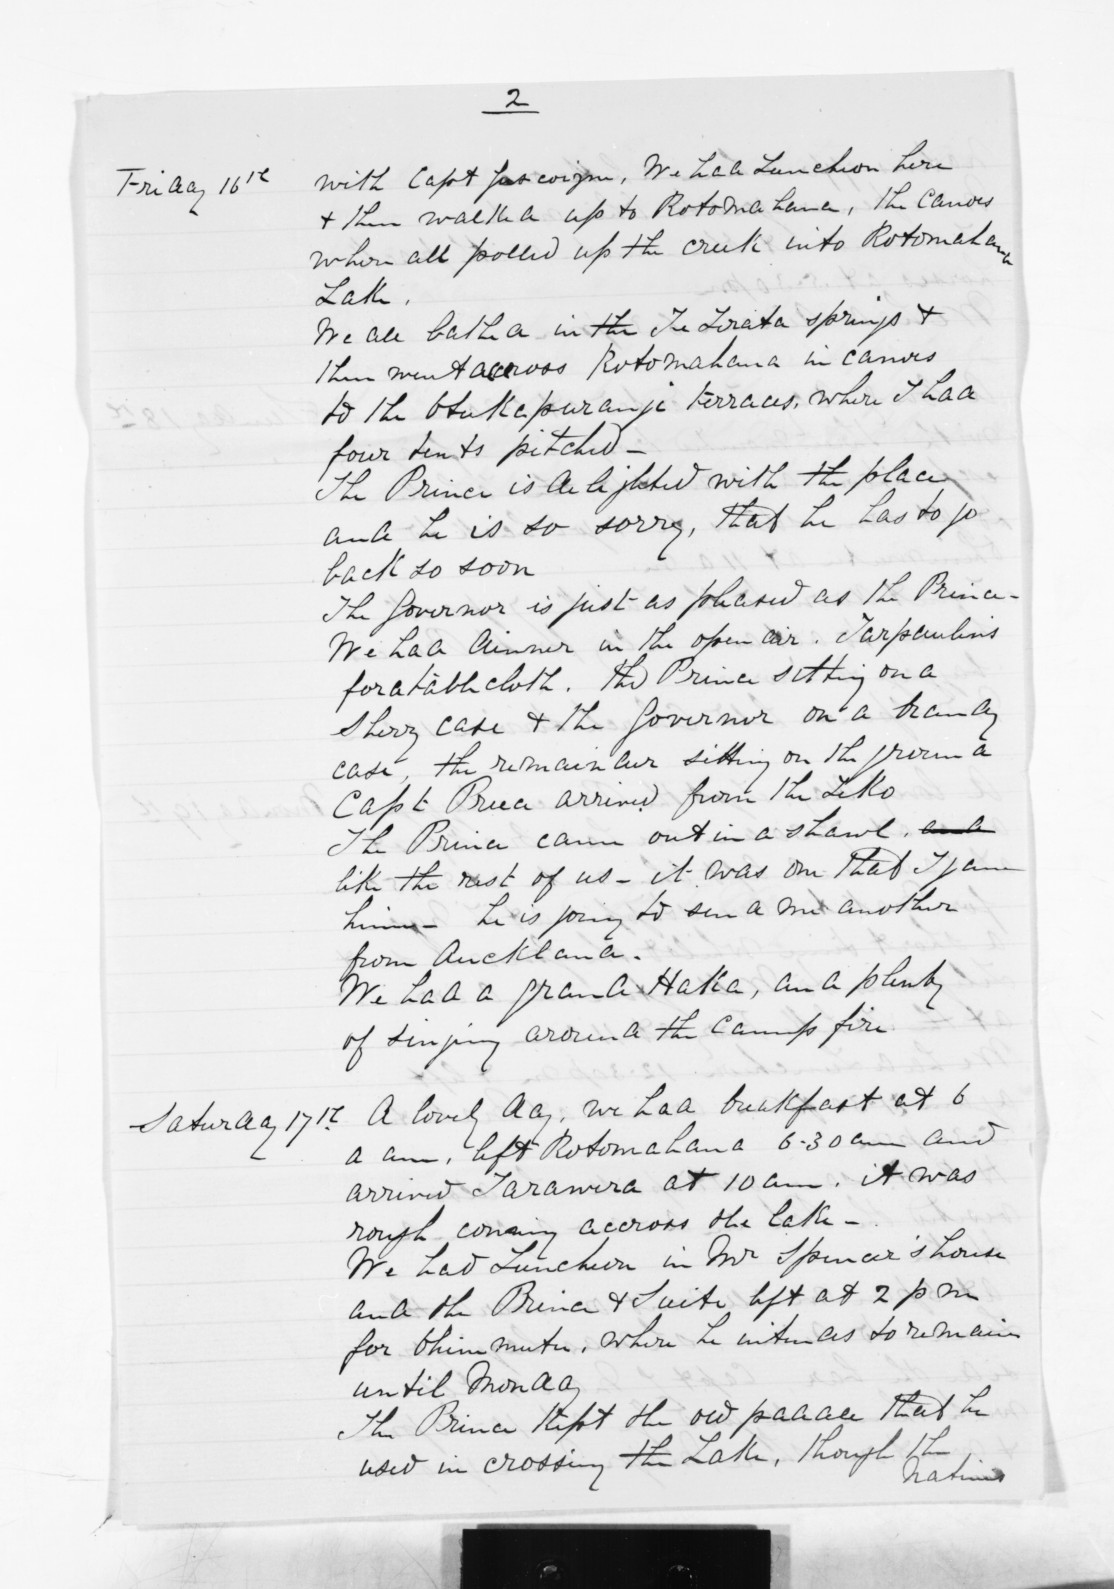 2
Friday 16th with Capt Gascoigne, We had Luncheon here
& then walked up to Rotomahana, the canoes
where all polled up the creek into Rotomahana
Lake.
We all bathed in the Te Terata springs &
then went accross Rotomahana in canoes
to the Otukapurangi terraces, where I had
four tents pitched –
The Prince is delighted with the place
and he is so sorry, that he has to go
back so soon
The Governor is just as pleased as the Prince –
We had dinner in the open air. Tarpaulins
for a tablecloth. the Prince sitting on a
sherry case & the Governor on a brandy
case, the remainder sitting on the ground
Capt Preece arrived from the Teko
The Prince came out in a shawl, and
like the rest of us – it was one that I gave
him – he is going to send me another
from Auckland.
We had a grand Haka, and plenty
of singing around the camp fire
Saturday 17th A lovely day, we had breakfast at 6
a am, left Rotomahana 6.30 am and
arrived Tarawera at 10 am. it was
rough coming accross the lake –
We had Luncheon in Mr Spencer's house
and the Prince & Suite left at 2 pm
for Ohinemutu, where he intends to remain
until Monday
The Prince kept the old paddle that he
used in crossing the Lake, though the
natives